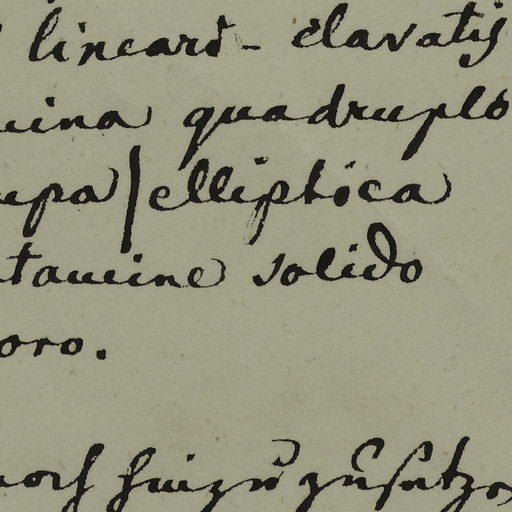 linears- clavatis
uina quadruplo
upa/elliptica
utamine solido
oro.
noch hinzu zu setzen